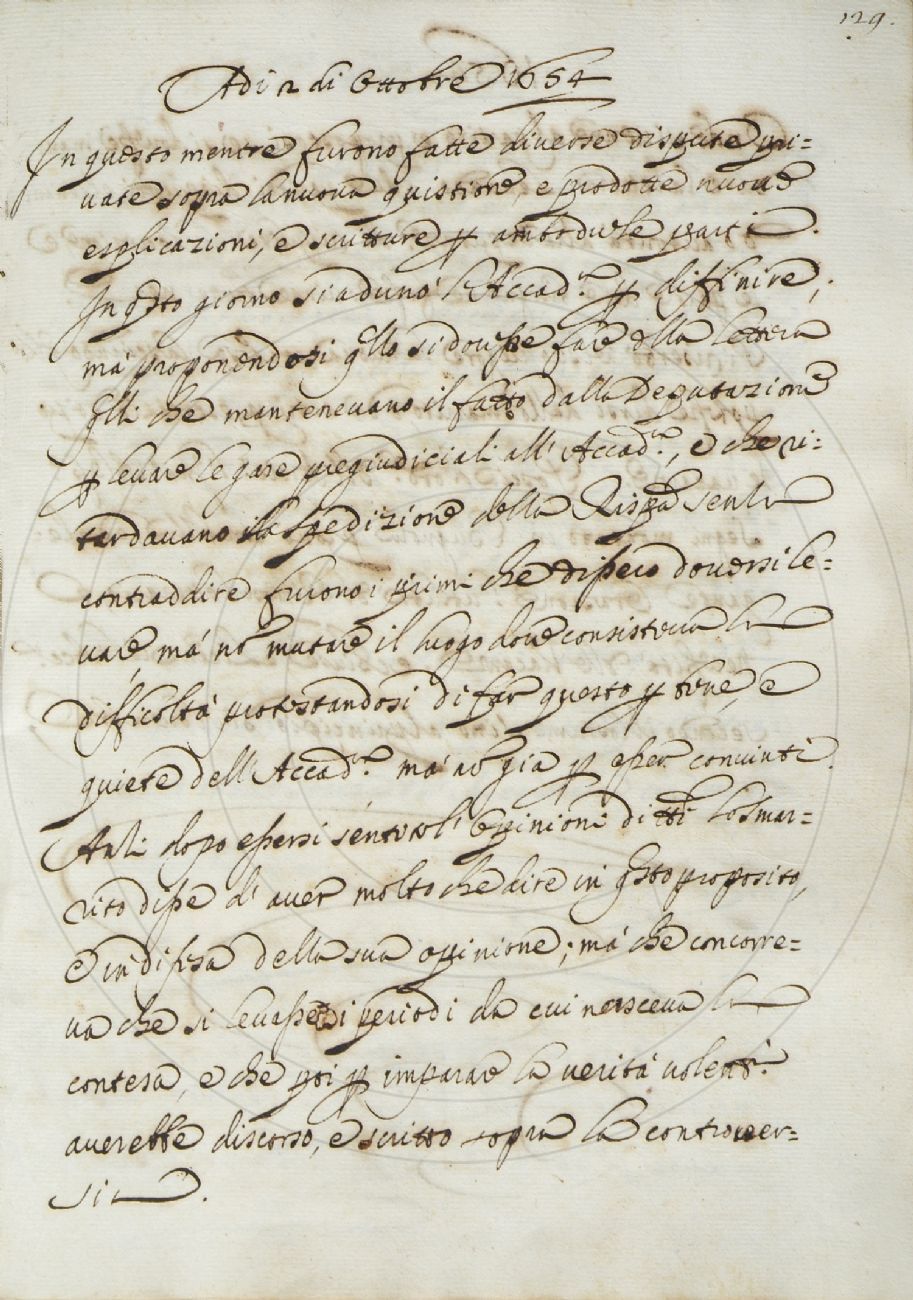 129.
Adi 2 di Ottobre 1654
In questo mentre furono fatte diverse dispute pri=
vate sopra la nuova quistione, e prodotte nuove
esplicazioni, e scritture p ambedue le parti.
In qsto giorno si adunò l'Accad.ª p diffinire,
mà proponendosi qllo si dovesse fare dlla lettera
qlli che mantenevano il fatto dalla Deputazione
p levare le gare pregiudiciali all' Accad.ª, e che ri=
tardavano la spedizione della Rispᵗᵃ senza
contraddire furono i primi che dissero doversi le=
vare mà nõ mutare il luogo dove consisteva la
difficoltà protestandosi di far questo p bene, e
quiete dell' Accad.ª mà nõ già p esser convinti.
dopo essersi sentito l' Opinioni di tti lo Smar=
rito disse d' aver molto che dire in qsto proposito,
e in difesa della sua opinione; mà che concorre=
va che si levassero i periodi da cui nasceva la
contesa, e che poi p imparare la verità volent.ʳⁱ
averebbe discorso, e scritto sopra la controver=
sia.